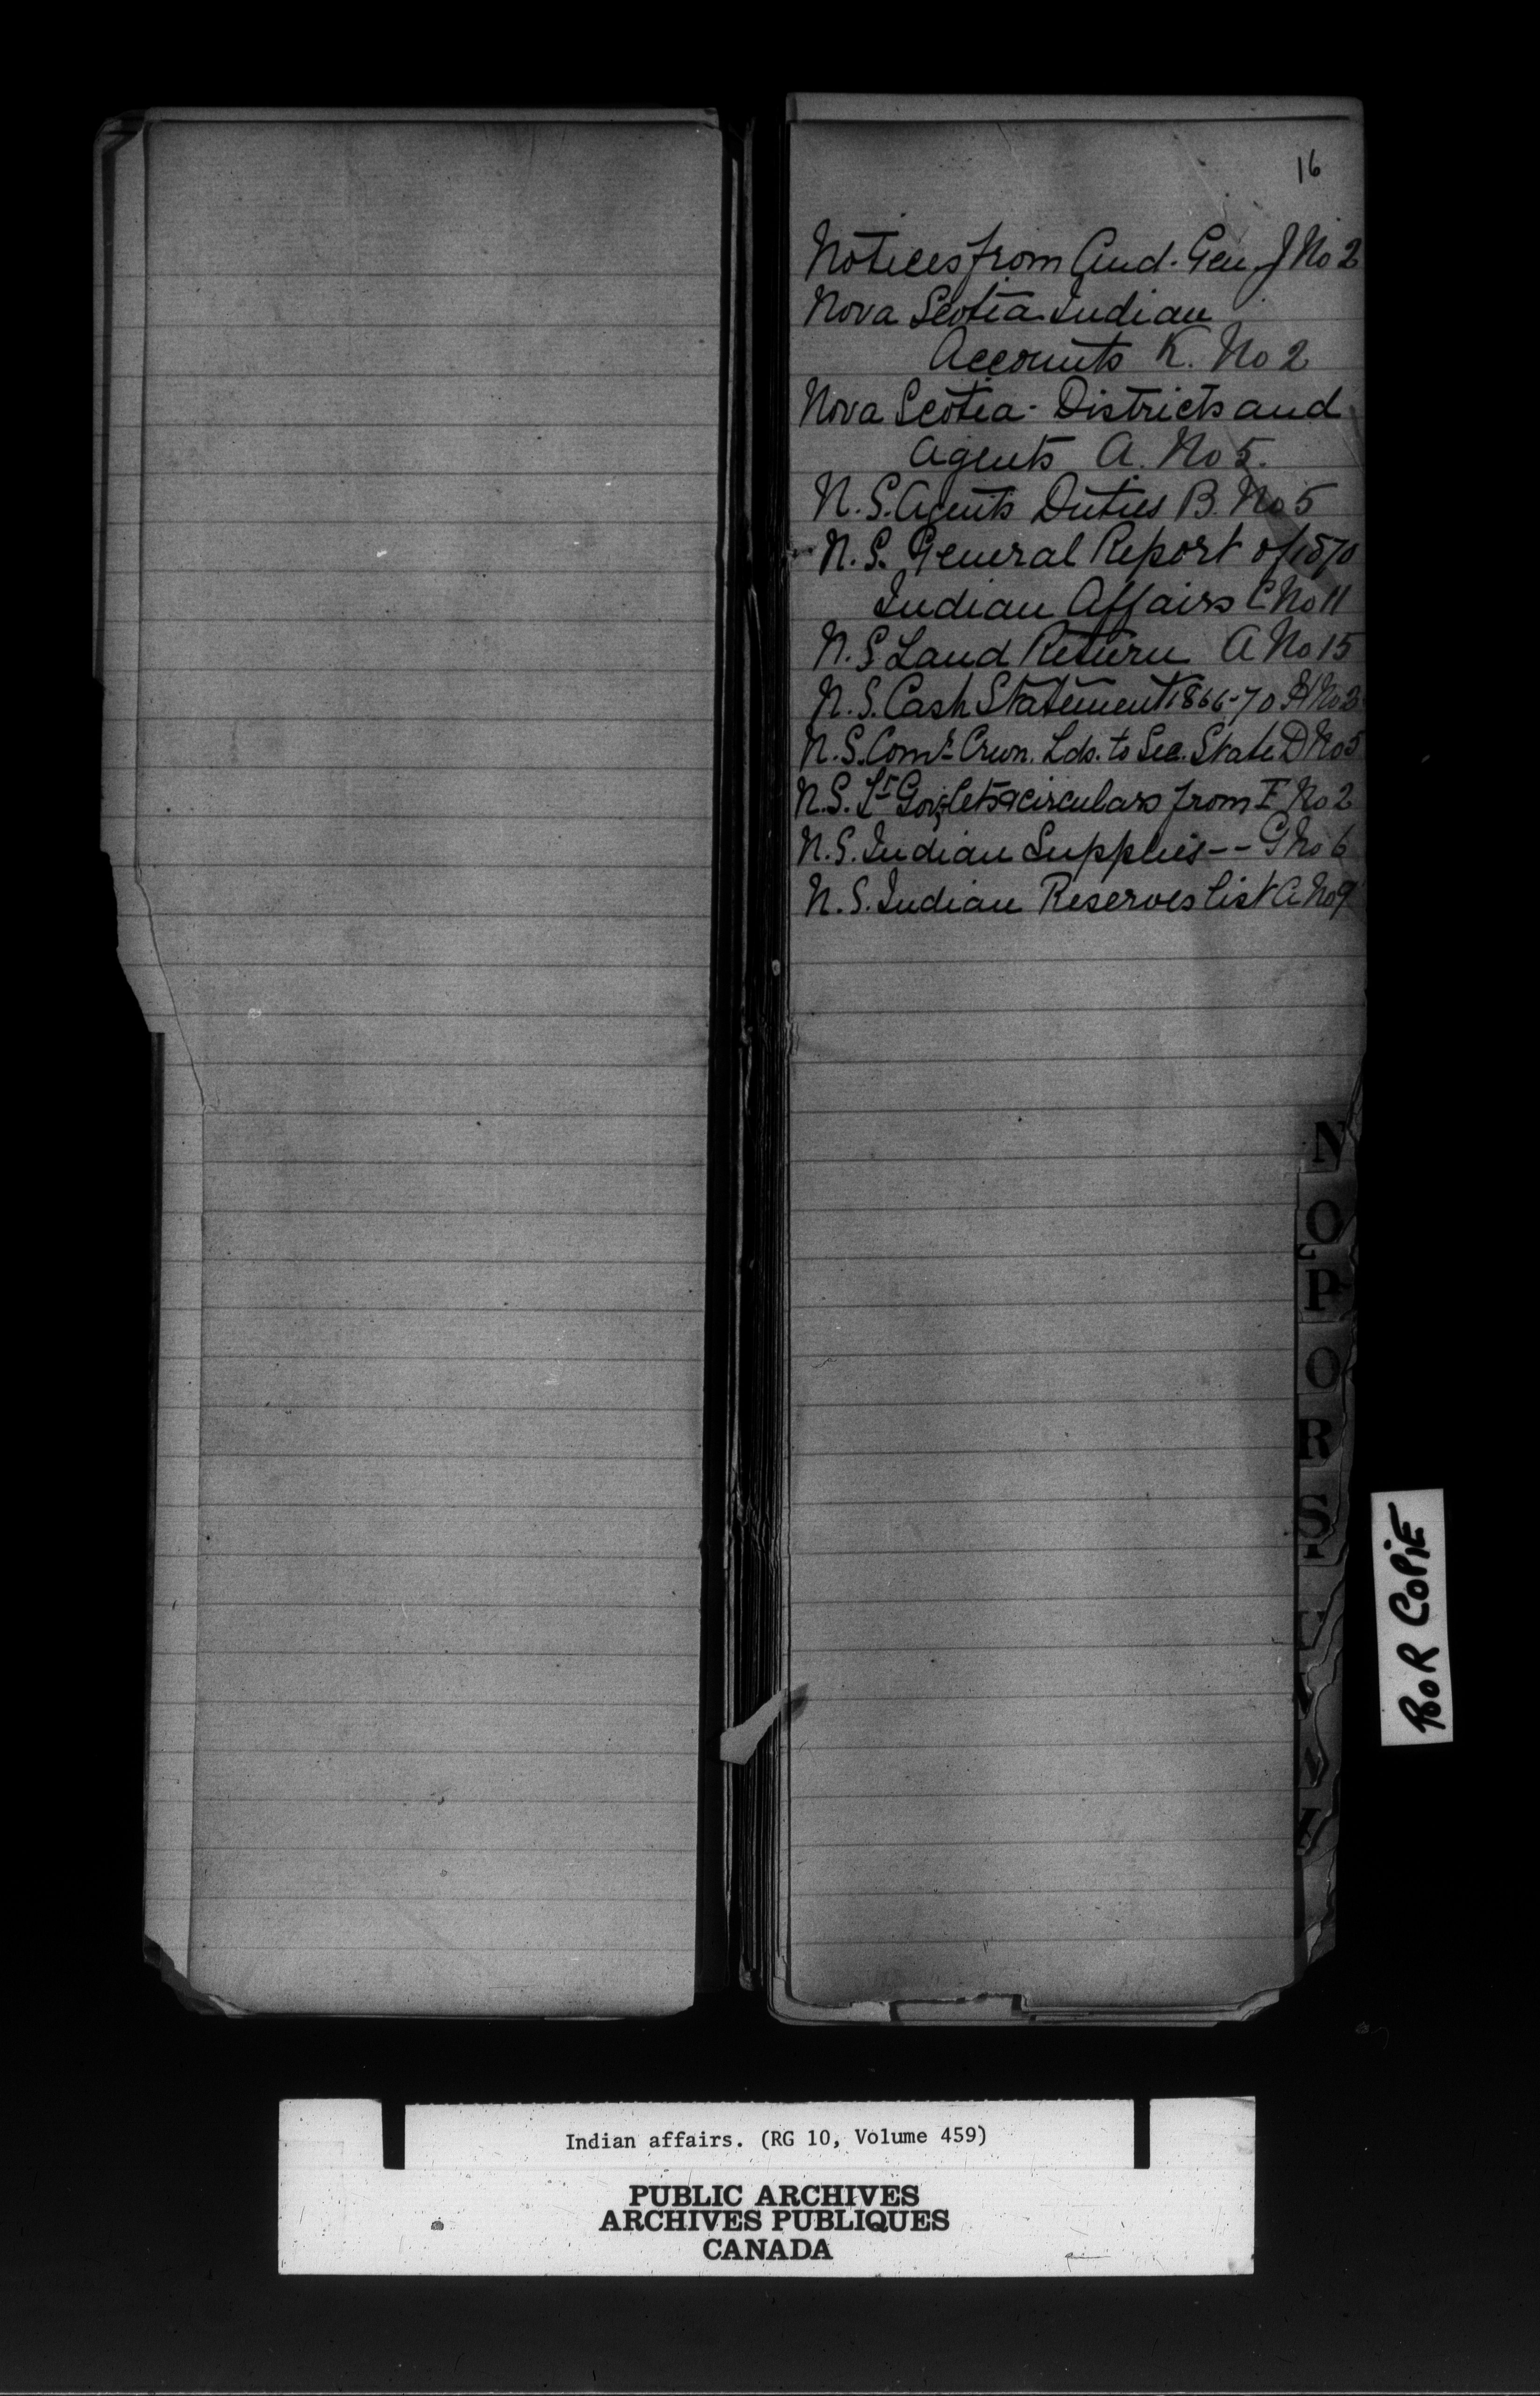 16
Notices from Aud. Gen. J No 2
Nova Scotia Indian
Accounts K. No 2
Nova Scotia - Districts and
Agents A. No 5.
N. S. Agents Duties B. No 5
N. S. General Report of 1870
Indian Affairs C No 11
N. S. Land Return A No 15
N. S. Cash Statement 1866-70 H No 2
N. S. Comr. Crwn. Lds. to Sec. State D No 5
N. S. Lt. Gov. lets & circulars from F No 2
N. S. Indian Supplies -- G No 6
N. S. Indian Reserves list A No 9
N
O
P
Q
R
S
POOR COPIE
Indian affairs. (RG 10, Volume 459)
PUBLIC ARCHIVES
ARCHIVES PUBLIQUES
CANADA